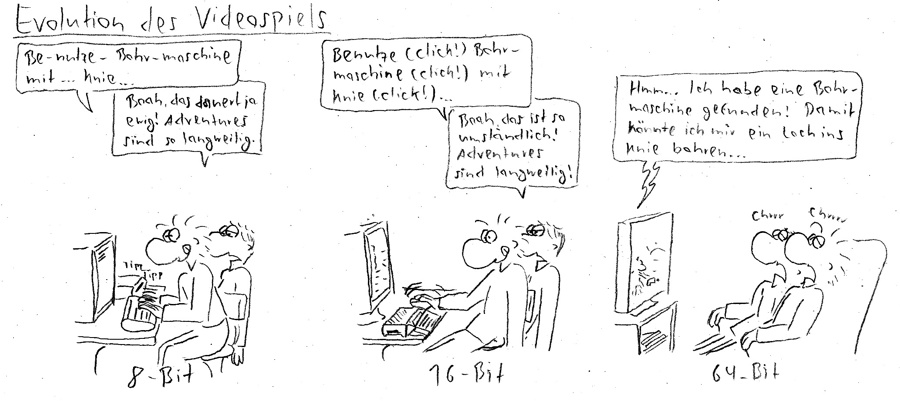 Evolution des Videospiels
Be-nutze-Bohr-maschine
mit... Knie...
Boah, das dauert ja
ewig! Adventures
sind so langweilig.
Tipp
Tipp
8-Bit
Benutze (click!) Bohr-
maschine (click!) mit
Knie (click!)...
Boah, das ist so
umständlich!
Adventures
sind langweilig!
16-Bit
Hmm... Ich habe eine Bohr-
maschine gefunden! Damit
könnte ich mir ein Loch ins
Knie bohren...
Chrrr
Chrrrr
64-Bit